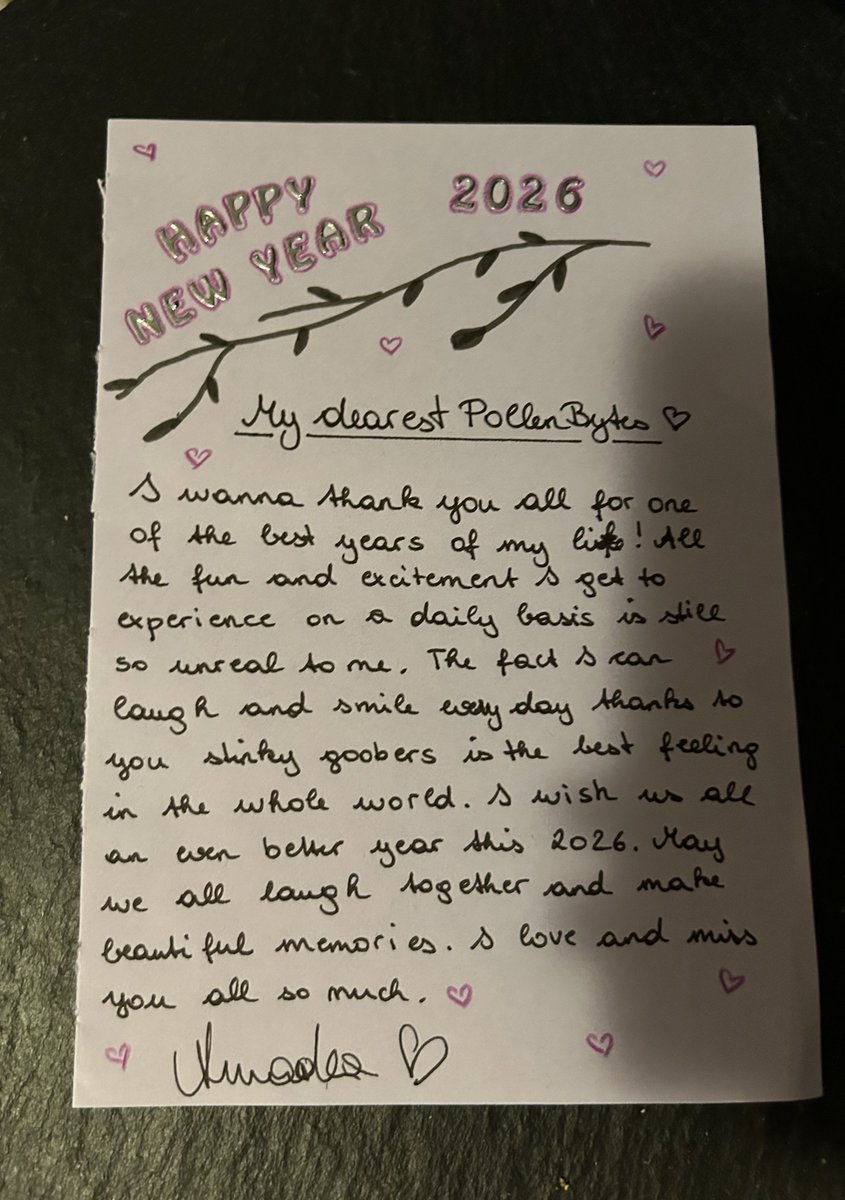 HAPPY
NEW YEAR
2026
My dearest PollenBytes ♡
I wanna thank you all for one
of the best years of my life! All
the fun and excitement I get to
experience on a daily basis is still
so unreal to me. The fact I can
laugh and smile every day thanks to
you stinky goobers is the best feeling
in the whole world. I wish us all
an even better year this 2026. May
we all laugh together and make
beautiful memories. I love and miss
you all so much. ♡
Amadea ♡